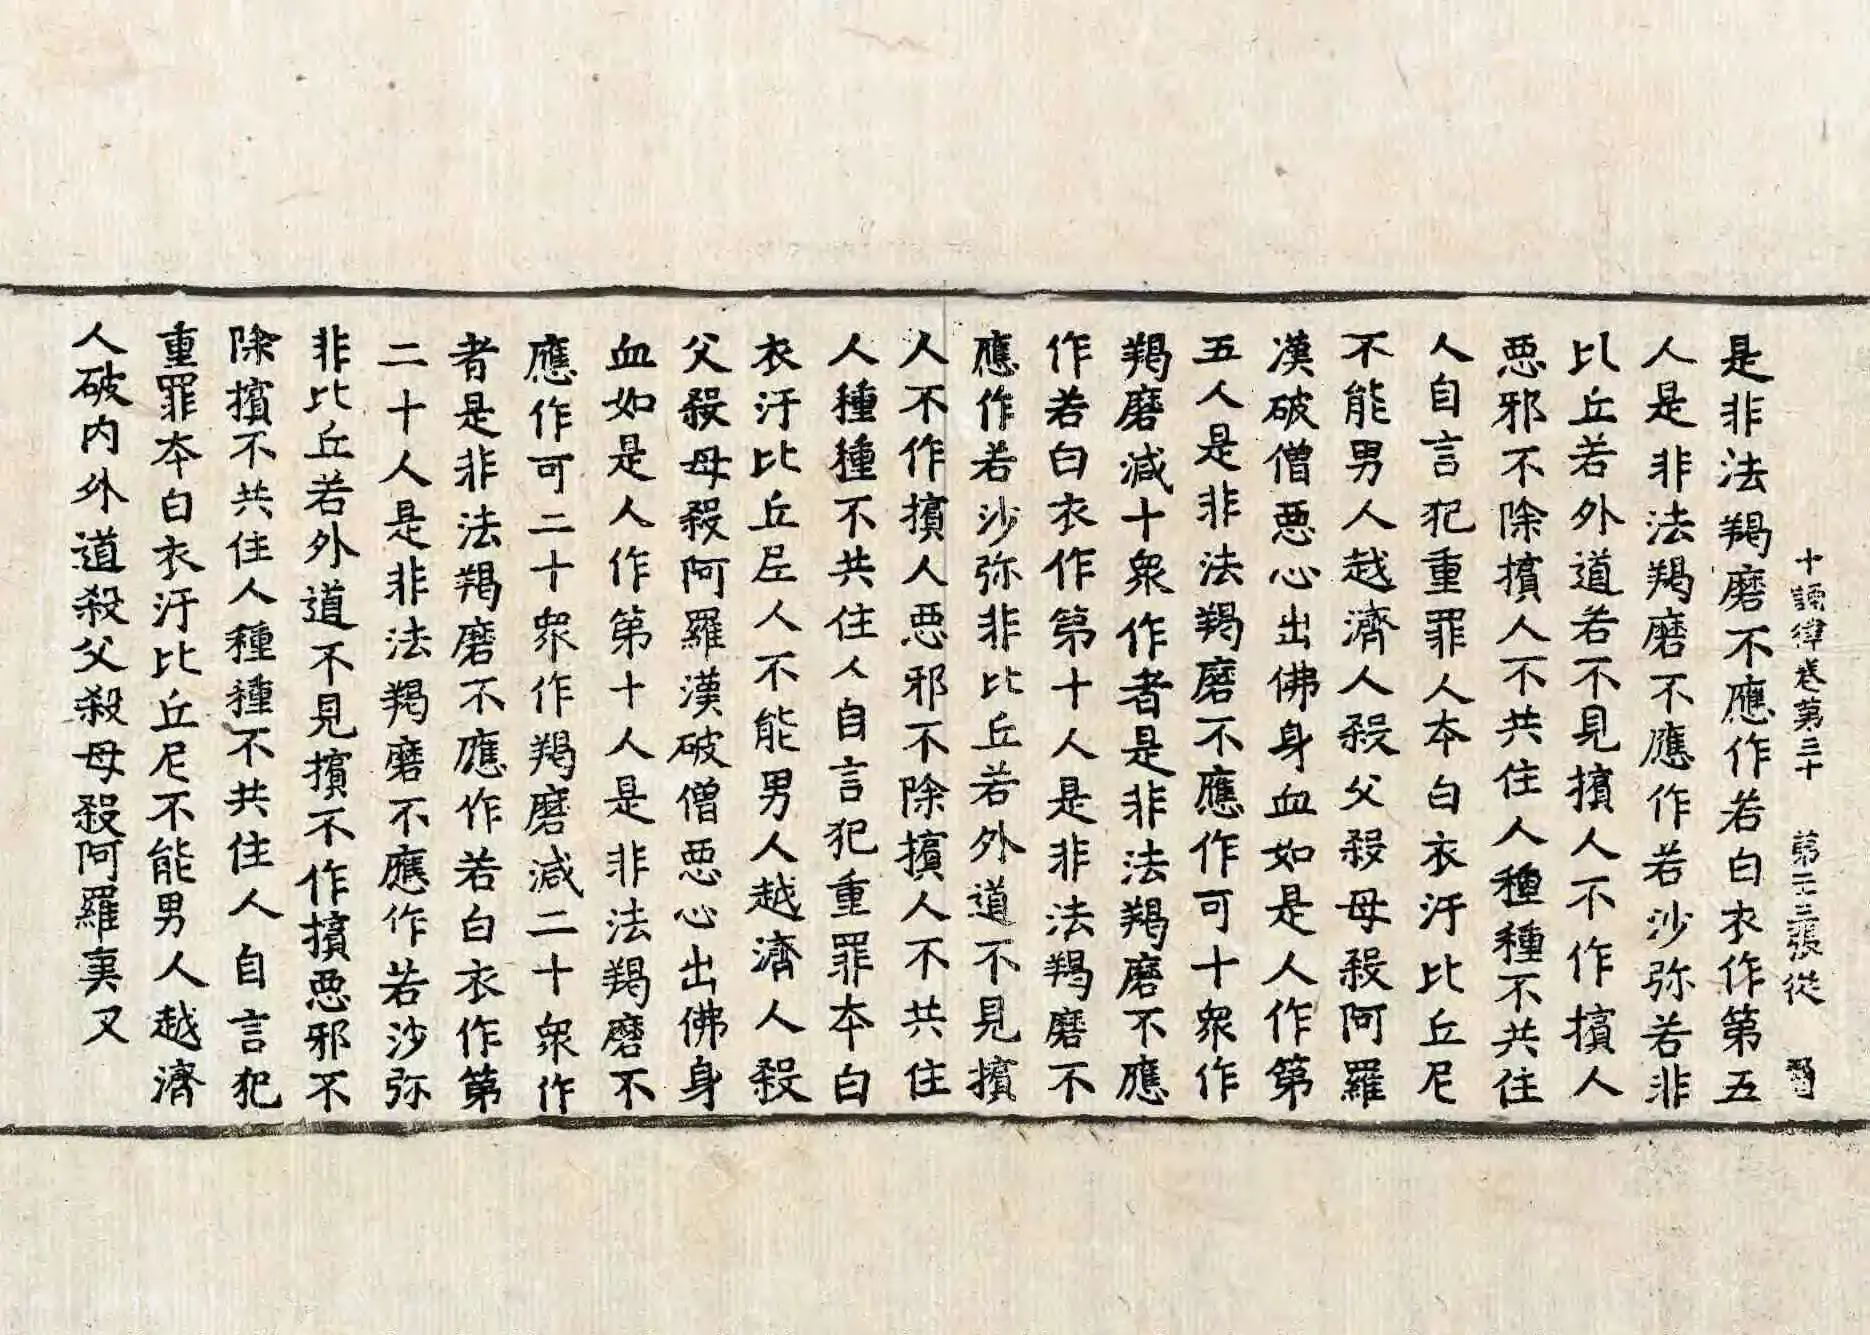 十誦律卷第三十 第二十三張 從
是非法羯磨不應作若白衣作第五
人是非法羯磨不應作若沙弥若非
比丘若外道若不見擯人不作擯人
惡邪不除擯人不共住人種種不共住
人自言犯重罪人本白衣汙比丘尼
不能男人越濟人殺父殺母殺阿羅
漢破僧惡心出佛身血如是人作第
五人是非法羯磨不應作可十衆作
羯磨減十衆作者是非法羯磨不應
作若白衣作第十人是非法羯磨不
應作若沙弥非比丘若外道不見擯
人不作擯人惡邪不除擯人不共住
人種種不共住人自言犯重罪本白
衣汙比丘尼人不能男人越濟人殺
父殺母殺阿羅漢破僧惡心出佛身
血如是人作第十人是非法羯磨不
應作可二十衆作羯磨減二十衆作
者是非法羯磨不應作若白衣作第
二十人是非法羯磨不應作若沙弥
非比丘若外道不見擯不作擯惡邪不
除擯不共住人種種不共住人自言犯
重罪本白衣汙比丘尼不能男人越濟
人破内外道殺父殺母殺阿羅漢又